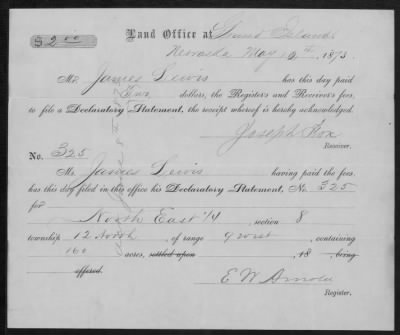 $2.00
Land Office at Grand Island
Nebraska May 1873.
Mr. James Lewis has this day paid
Two dollars, the Register's and Receiver's fees,
to file a Declaratory Statement, the receipt whereof is hereby acknowledged.
Joseph Fox
Receiver.
No. 325
Mr. James Lewis having paid the fees,
has this day filed in this office his Declaratory Statement, No. 325
for
North East 1/4 section 8
township 12 North, of range 9 west, containing
160 acres, settled upon , 18 , being
offered.
E W Arnold
Register.